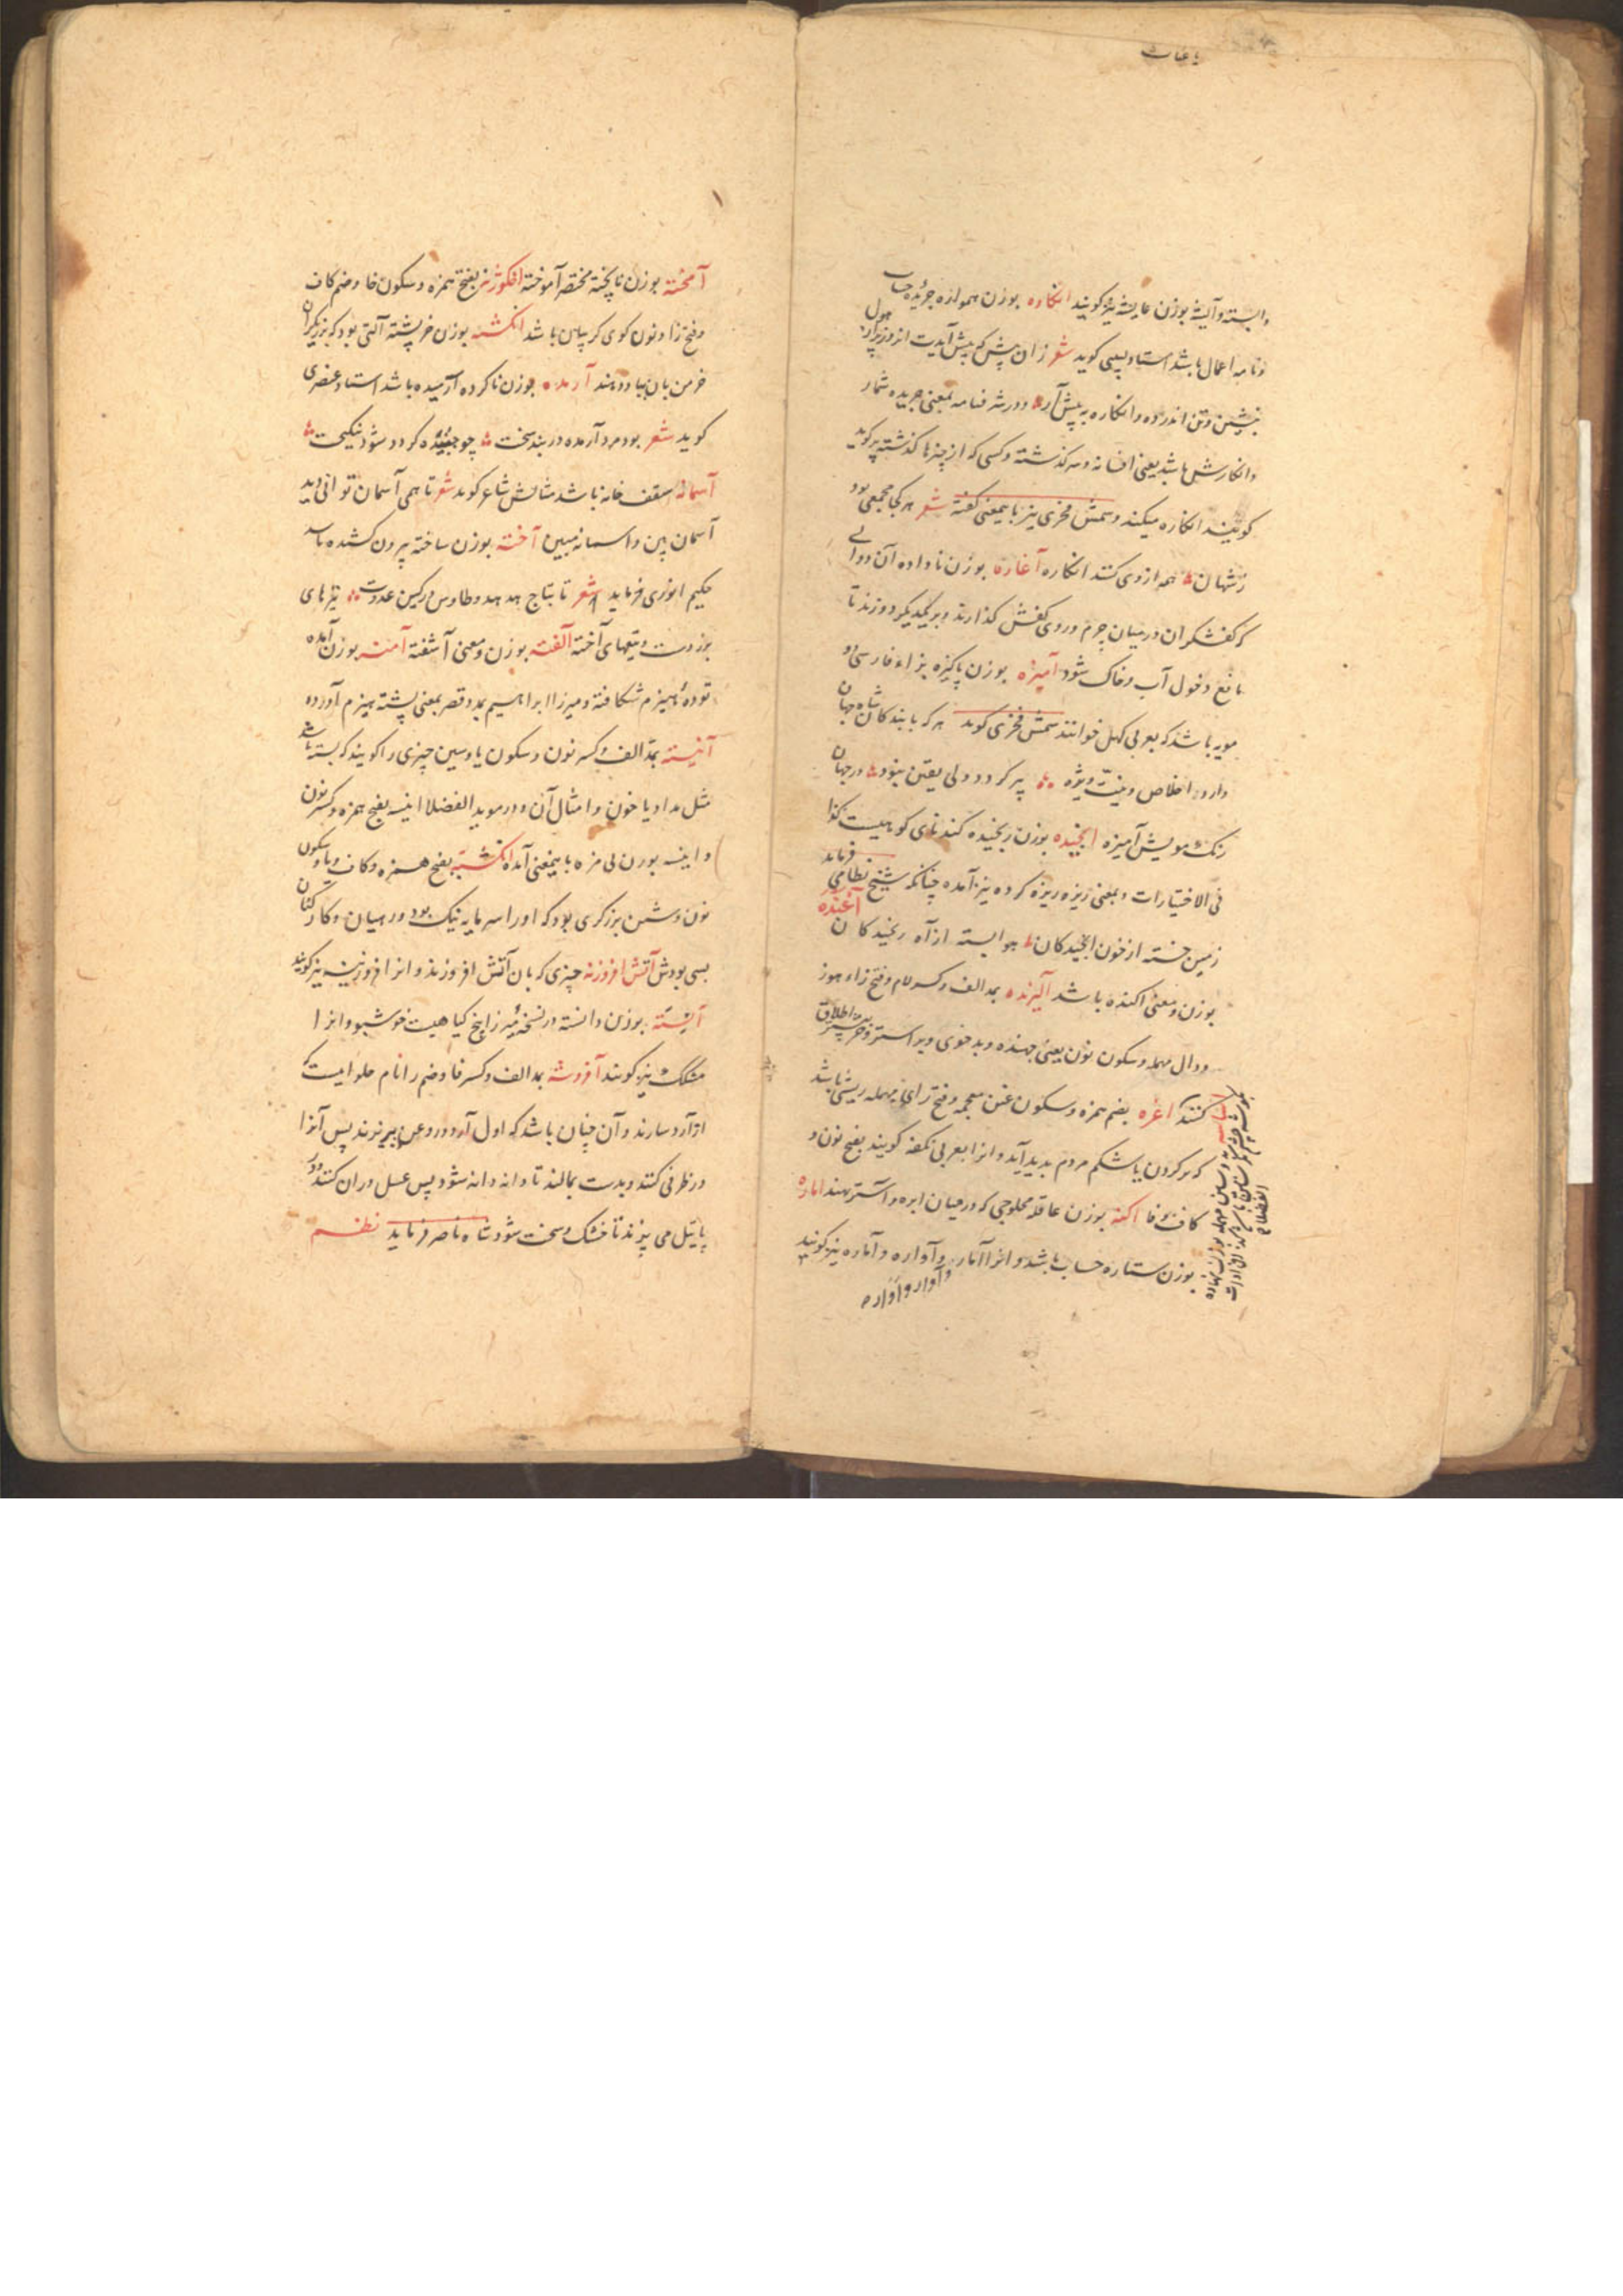 وابسته و آیشه بوزن عایشه نیز کویند انکاره بوزن همواره جریدهٔ حساب
و نامه اعمال باشد استاد لبیبی کوید شعر زان پیش که پیش آیدت انروز پر از هول
بنشین و تن اندر ده و انکاره به پیش آر و در شرفنامه بمعنی جریده شمار
و انکارش باشد یعنی افسانه و سرکذشته و کسی که از چیزها کذشته پر کوید
کویند انکاره میکند و شمس فخری نیز باینمعنی کفته شعر هر کجا مجمعی بود
ز شهان همه از وی کنند انکاره آغاره بوزن ناداده آن دوالی
که کفشکران در میان چرم و روی کفش کذارند و بر یکدیکر دوزند تا
مانع دخول آب و خاک شود آمیژه بوزن پاکیزه بزاء فارسی دو
مویه باشد که بعربی کهل خوانند شمس فخری کوید هر که با بندکان شاه جهان
دارد اخلاص و نیت ویژه پیر کردد ولی یقین بنود در جهان
رنک مویش آمیژه انجیده بوزن رنجیده کندنای کوهیست کذا
فی الاختیارات و بمعنی ریزه ریزه کرده نیز آمده چنانکه شیخ نظامی فرماید
زمین خسته از خون انجیدکان هوا بسته از آه رنجیدکان آغنده
بوزن و معنی اکنده باشد آلیزنده بمد الف و کسر لام و فتح زاء هوز
و دال مهمله و سکون نون یعنی جهنده و بدخوی و بر استر و خر بیشتر اطلاق
کنند اغره بضم همزه و سکون غین معجمه و فتح رای مهمله ریشی باشد
که بر کردن یا شکم مردم بدید آید و انرا بعربی نکفه کویند بفتح نون و
کاف و فا اکنه بوزن عاقله محلوجی که در میان ابره و آستر نهند اماره
بوزن ستاره حساب باشد و انرا آمار و آواره و آماره نیز کویند
و آوار و آواره
آمخته بوزن ناپخته مختصر آموخته افکوژنه بفتح همزه و سکون فا و ضم کاف
و فتح زا و نون کوی کریبان باشد انکشته بوزن خرپشته آلتی بود که بزریکران
خرمن بان بباد دهند آرمده بوزن ناکرده آرمیده باشد استاد عنصری
کوید شعر بود مرد آرمده در بند سخت چو جنبنده کردد شود نیکبخت
آسمانه سقف خانه باشد مثالش شاعر کوید شعر تا همی آسمان توانی دید
آسمان بین و اسمانه مبین آخته بوزن ساخته بیرون کشیده باشد
حکیم انوری فرماید شعر تا بتاج هدهد و طاوس در کین عدوت نیزهای
بردست و تیغهای آخته آلفته بوزن و معنی آشفته آمنه بوزن آمده
تودهٔ هیزم شکافته و میرزا ابراهیم بمد و قصر بمعنی پشته هیزم آورده
آنیسته بمد الف و کسر نون و سکون یا و سین چیزی را کویند که بسته باشد
مثل مداد یا خون و امثال آن و در موید الفضلا انیسه بفتح همزه و کسر نون
و اینسه بوزن بی مزه باینمعنی آمده انکشبه بفتح همزه و کاف و با و سکون
نون و شین برزکری بود که او را سرمایه نیک بود و رهیان و کارکنان
بسی بودش آتش افروزنه چیزی که بان آتش افروزند و انرا افروزینه نیز کویند
آیشنه بوزن دانسته در نسخهٔ میرزا بیخ کیاهیست خوشبو و انرا
مشکک نیز کویند آفروشه بمد الف و کسر فا و ضم را نام حلوائیست که
از آرد سازند و آن چنان باشد که اول آرد و روغن بهم بزنند پس آنرا
در ظرفی کنند و بدست بمالند تا دانه دانه شود پس عسل در ان کنند و در
پاتیل می پزند تا خشک و سخت شود شاه ناصر فرماید نظم